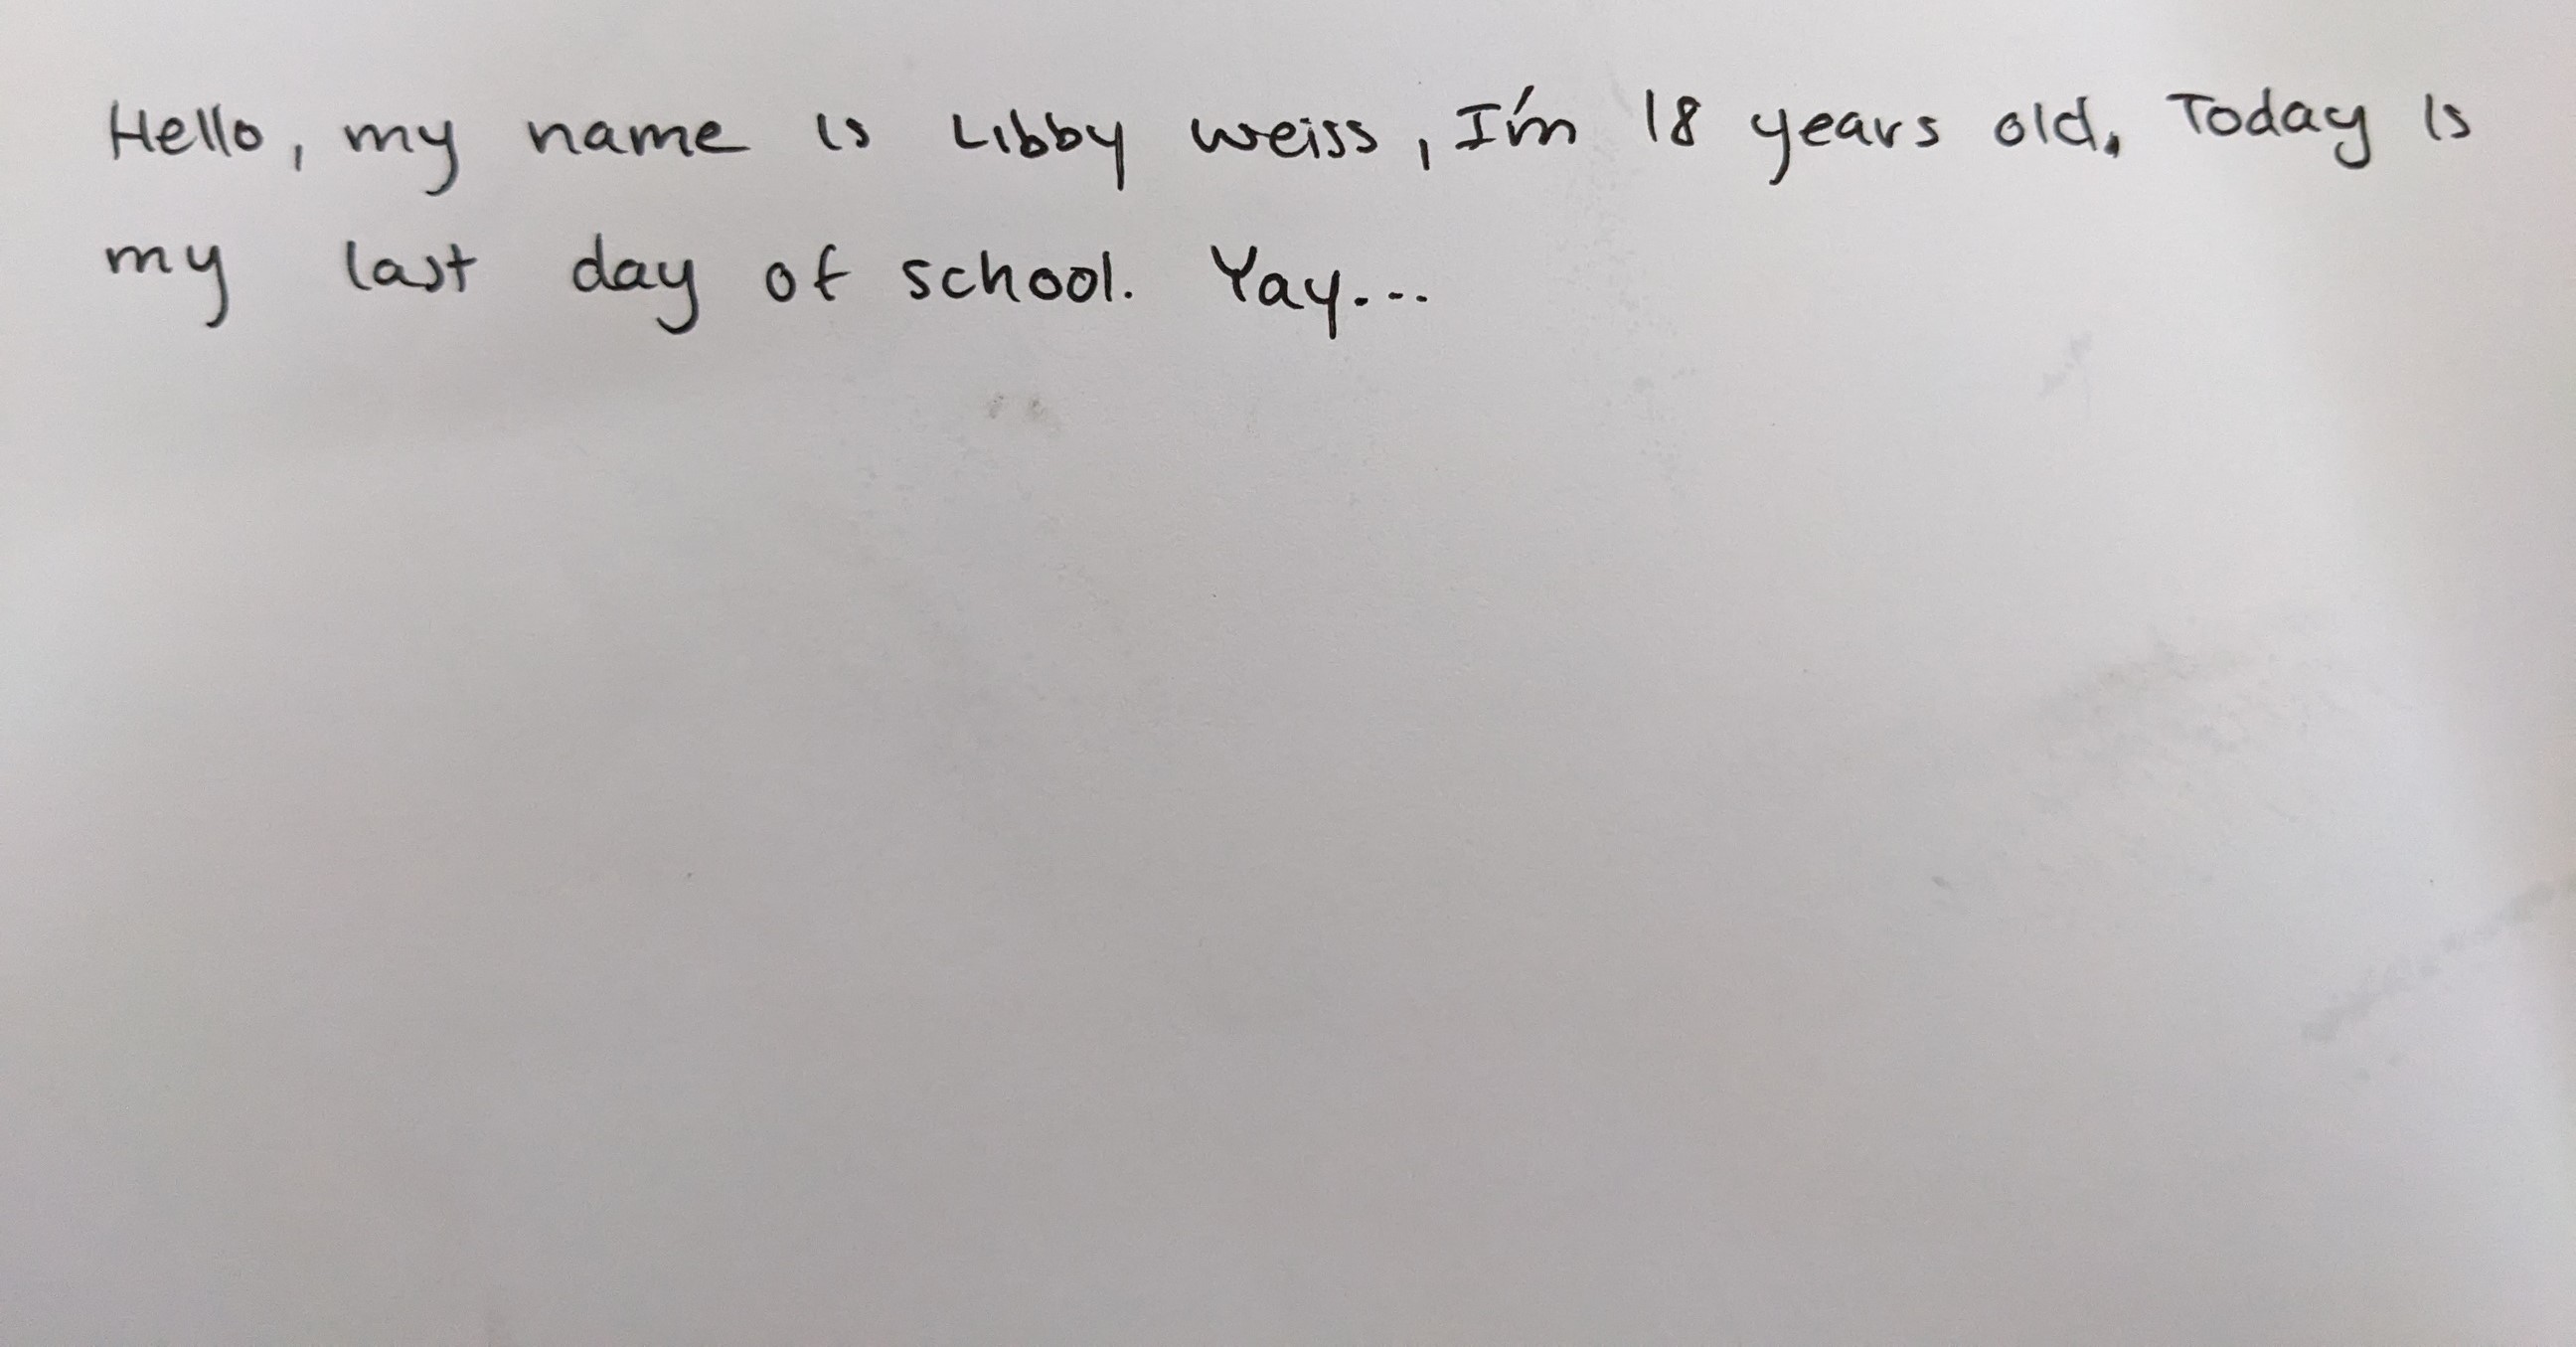 Hello, my name is Libby weiss, I'm 18 years old. Today is
my last day of school. Yay...